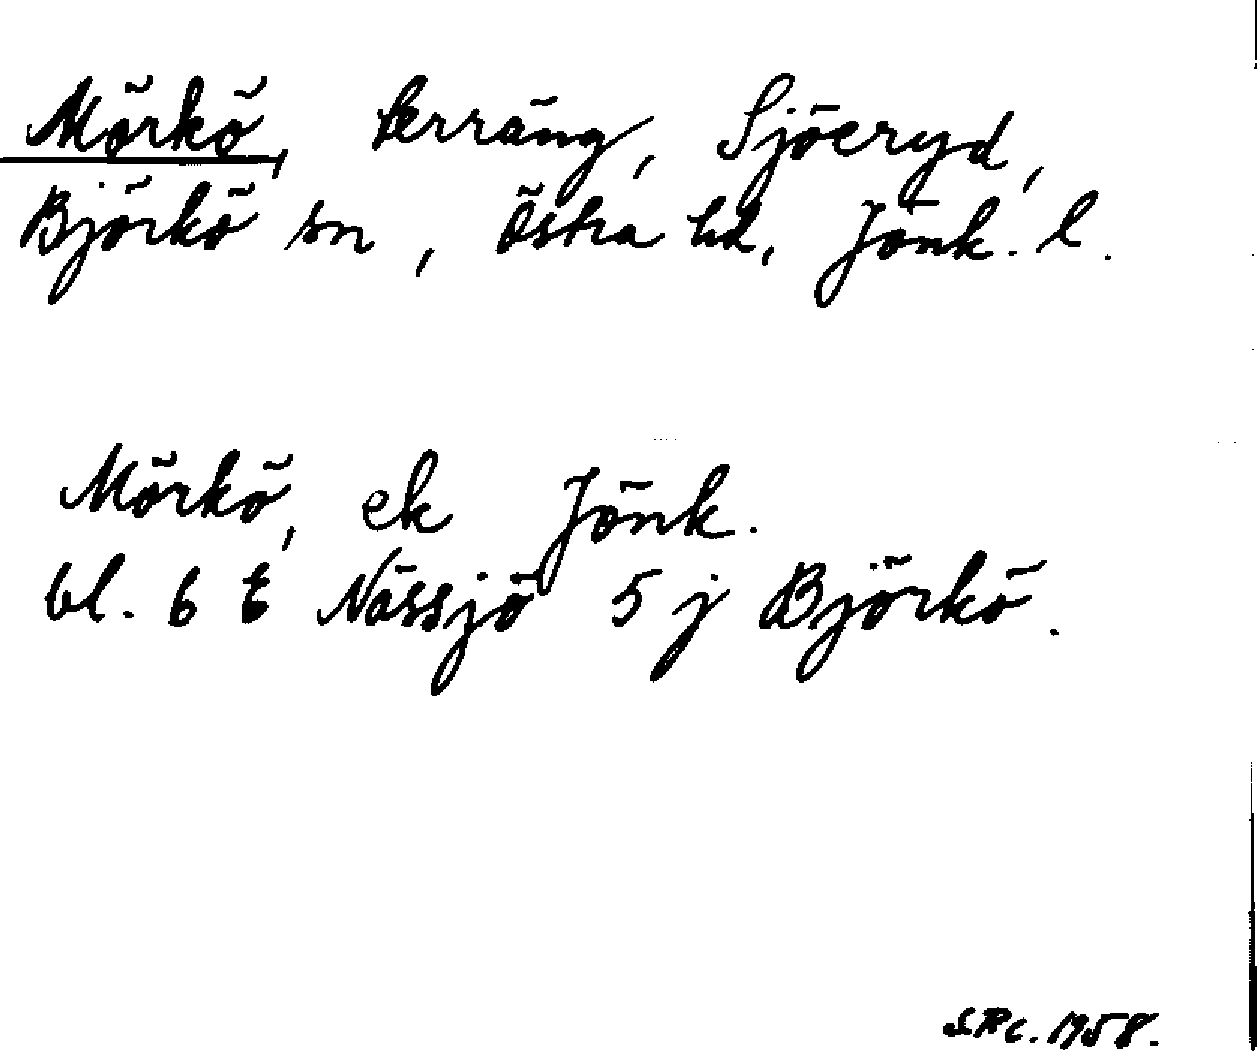 Mörkö, terräng, Sjöeryd,
Björkö sn, Östra hd, Jönk. l.
Mörkö, ek Jönk.
bl. 6 t Nässjö 5 j Björkö.
SRc. 1958.